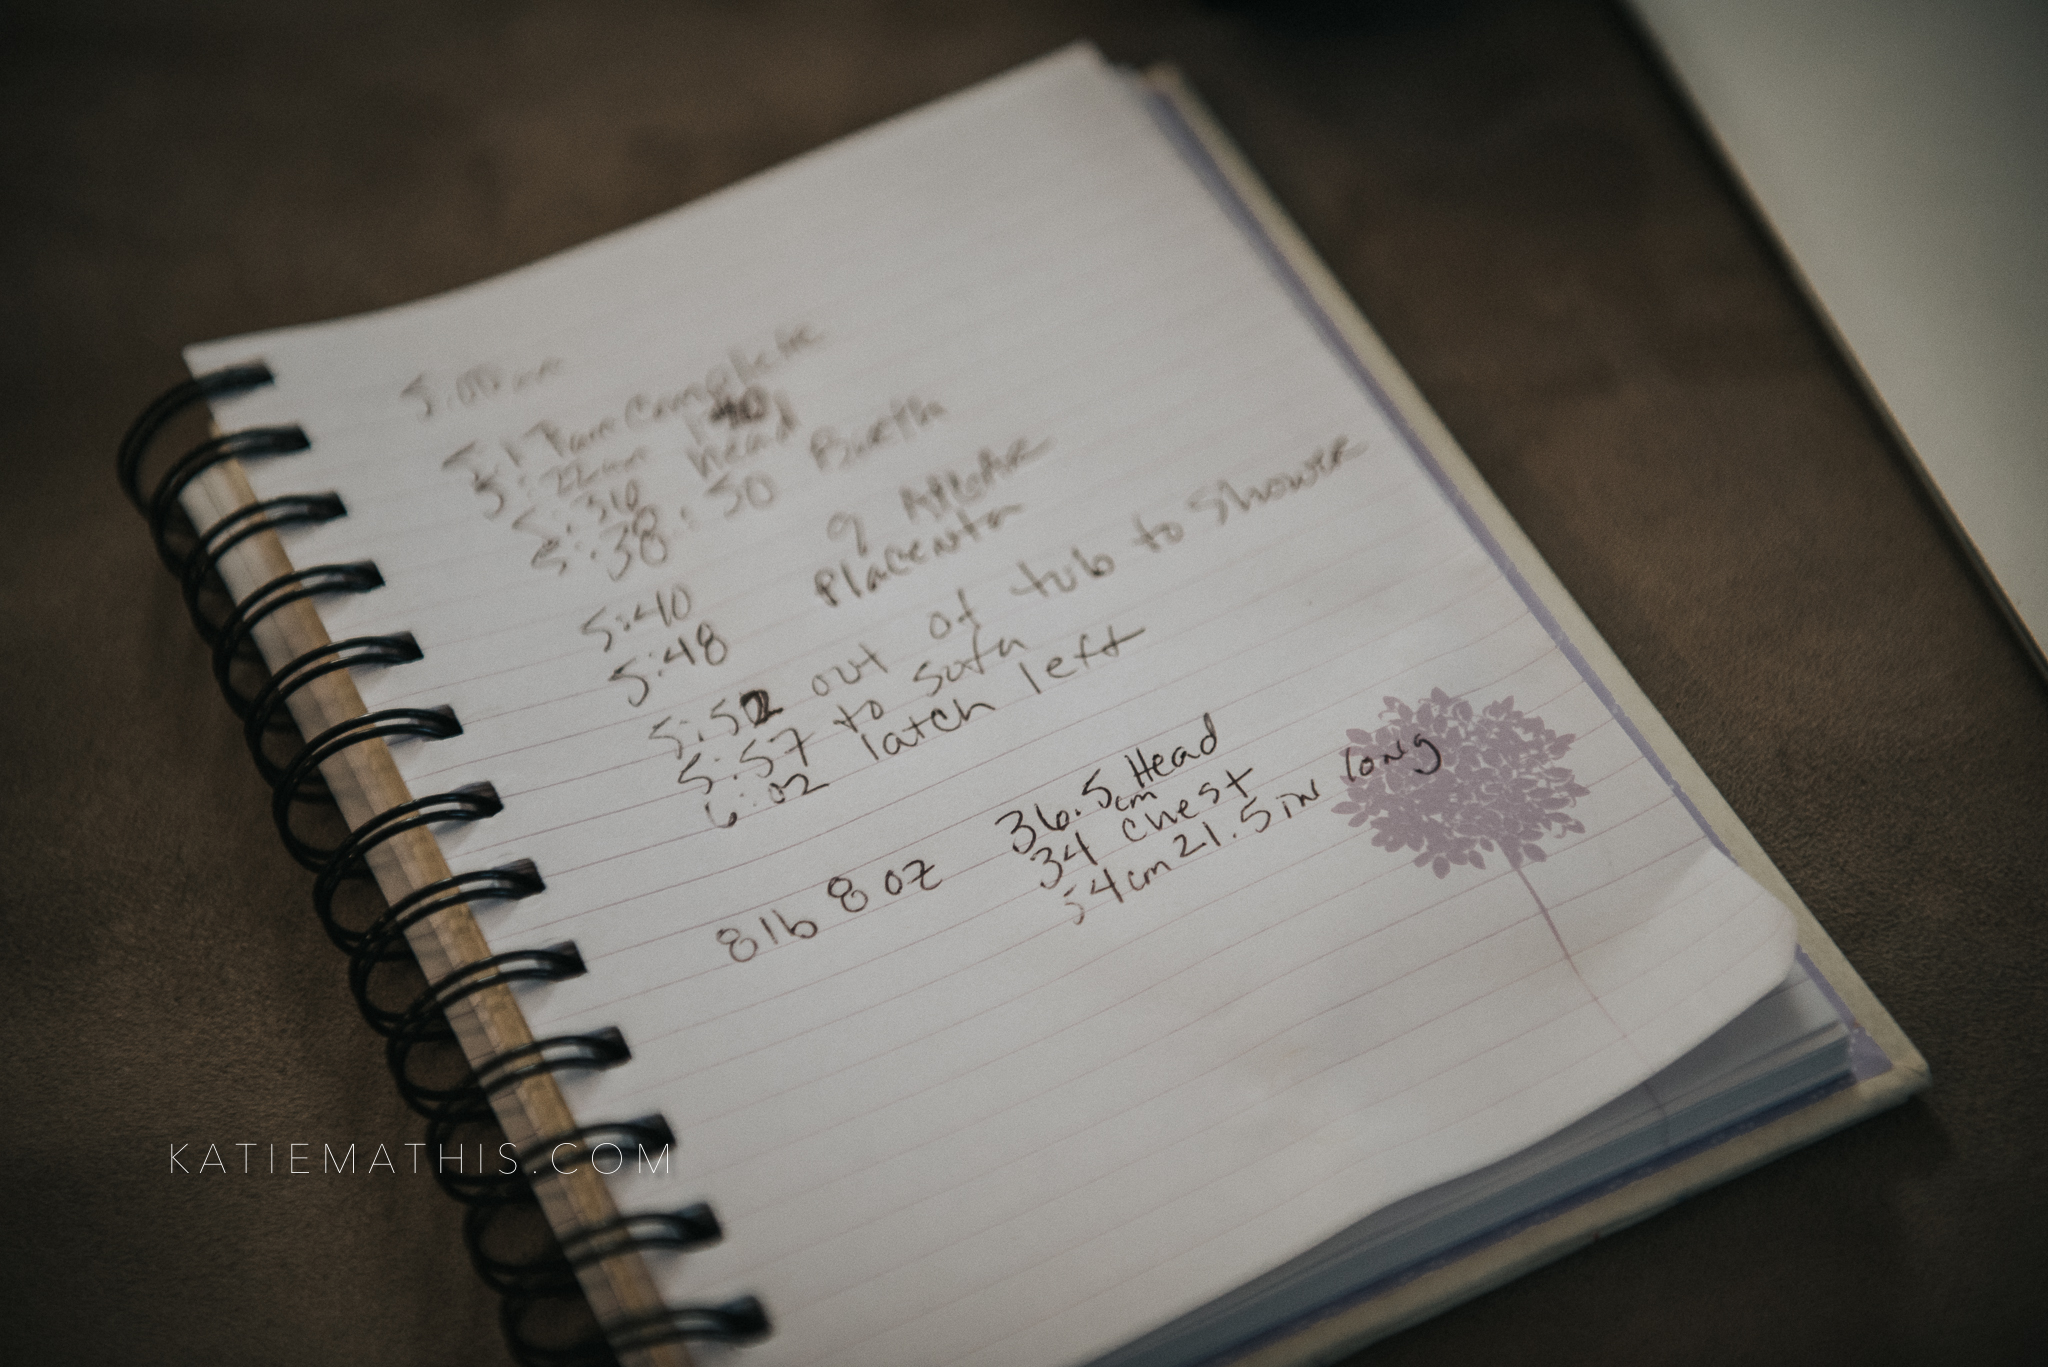 5:17am Complete
5:22am
Head
5:38:50 Birth
5:40 9 APGAR
5:48 Placenta
5:52 out of tub to shower
5:57 to sofa
6:02 latch left
8lb 8 oz 36.5cm Head
34 chest
54cm 21.5 in long
KATIEMATHIS.COM